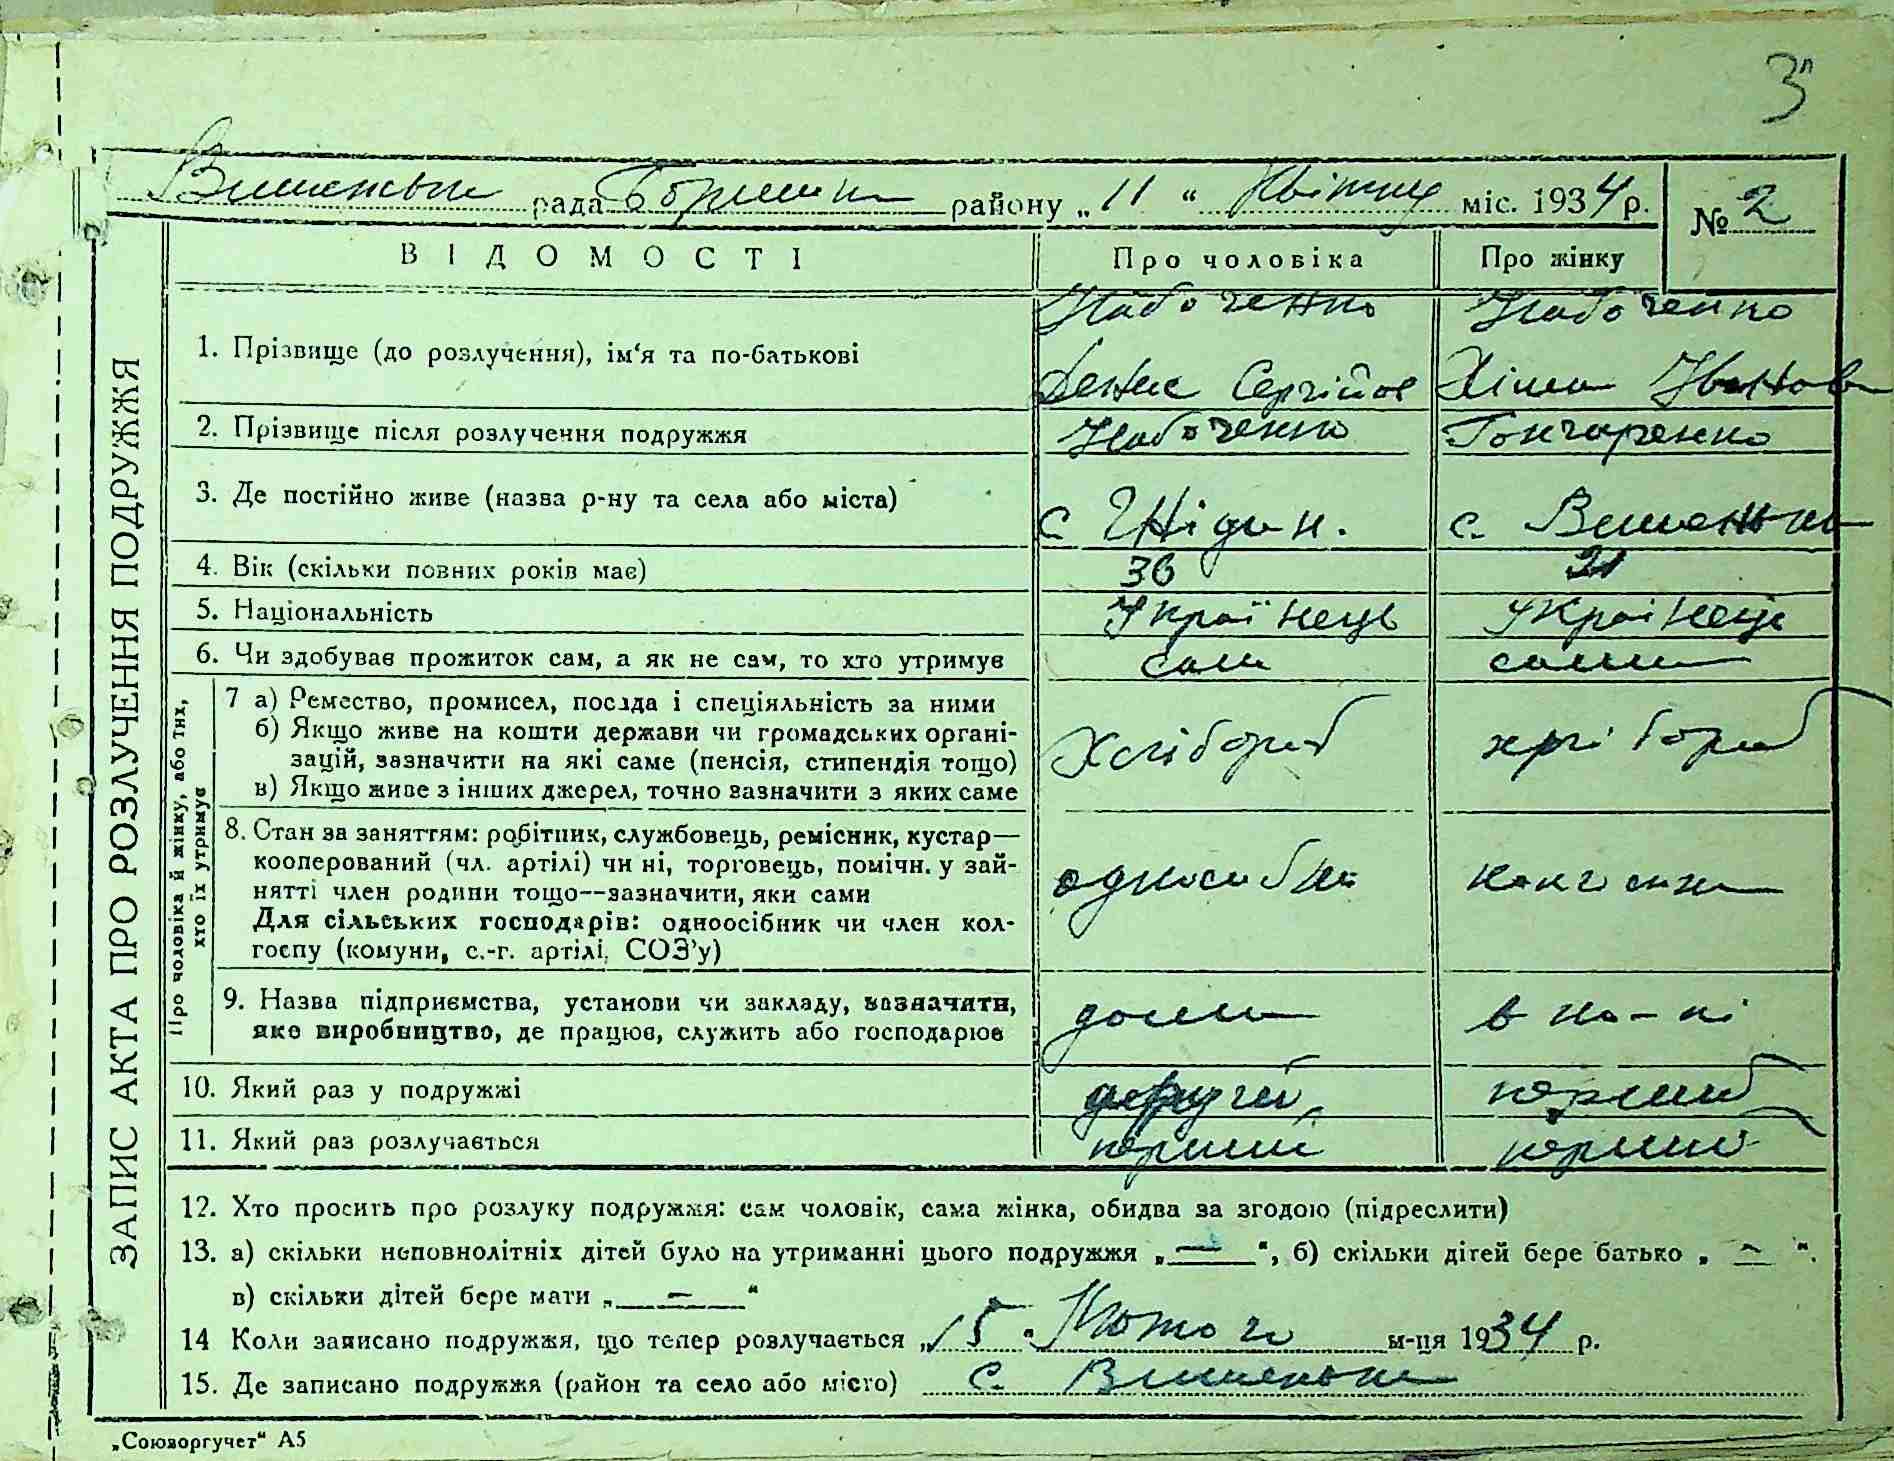 3
Вишеньки рада Борисп районy „ 11 “ Квітня міс. 1934 р.
№ 2
ЗАПИС АКТА ПРО РОЗЛУЧЕННЯ ПОДРУЖЖЯ
ВІДОМОСТІ Про чоловіка Про жінку
1. Прізвище (до розлучення), ім‘я та по-батькові Набоченко Денис Сергійов Набоченко Хіма Іванов
2. Прізвище після розлучення подружжя Набоченко Гончаренко
3. Де постійно живе (назва р-ну та села або міста) с Гнідин. с. Вишеньки
4. Вік (скільки повних років має) 36 21
5. Національність Українець Украінець
6. Чи здобуває прожиток сам, а як не сам, то хто утримує сам сама
Про чоловіка й жінку, або тих, хто їх утримує
7 а) Ремество, промисел, посада і спеціяльність за ними
б) Якщо живе на кошти держави чи громадських органі-
зацій, зазначити на які саме (пенсія, стипендія тощо)
в) Якщо живе з інших джерел, точно зазначити з яких саме
Хлібороб хрібороб
8. Стан за заняттям: робітник, службовець, ремісник, кустар—
кооперований (чл. артілі) чи ні, торговець, помічн. у зай-
нятті член родини тощо—зазначити, яки сами
Для сільських господарів: одноосібник чи член кол-
госпу (комуни, с.-г. артілі, СОЗ’у)
9. Назва підприємства, установи чи закладу, зазначити,
яке виробництво, де працює, служить або господарює
дома в ко-пі
10. Який раз у подружжі другий перший
11. Який раз розлучається перший перший
12. Хто просить про розлуку подружжя: сам чоловік, сама жінка, обидва за згодою (підреслити)
13. а) скільки неповнолітніх дітей було на утриманні цього подружжя „ — “, б) скільки дітей бере батько „ — “.
в) скільки дітей бере мати „ — “
14 Коли записано подружжя, що тепер розлучається „15“ Лютого м-ця 1934 р.
15. Де записано подружжя (район та село або місто) с. Вишеньки
„Союзоргучет“ А5